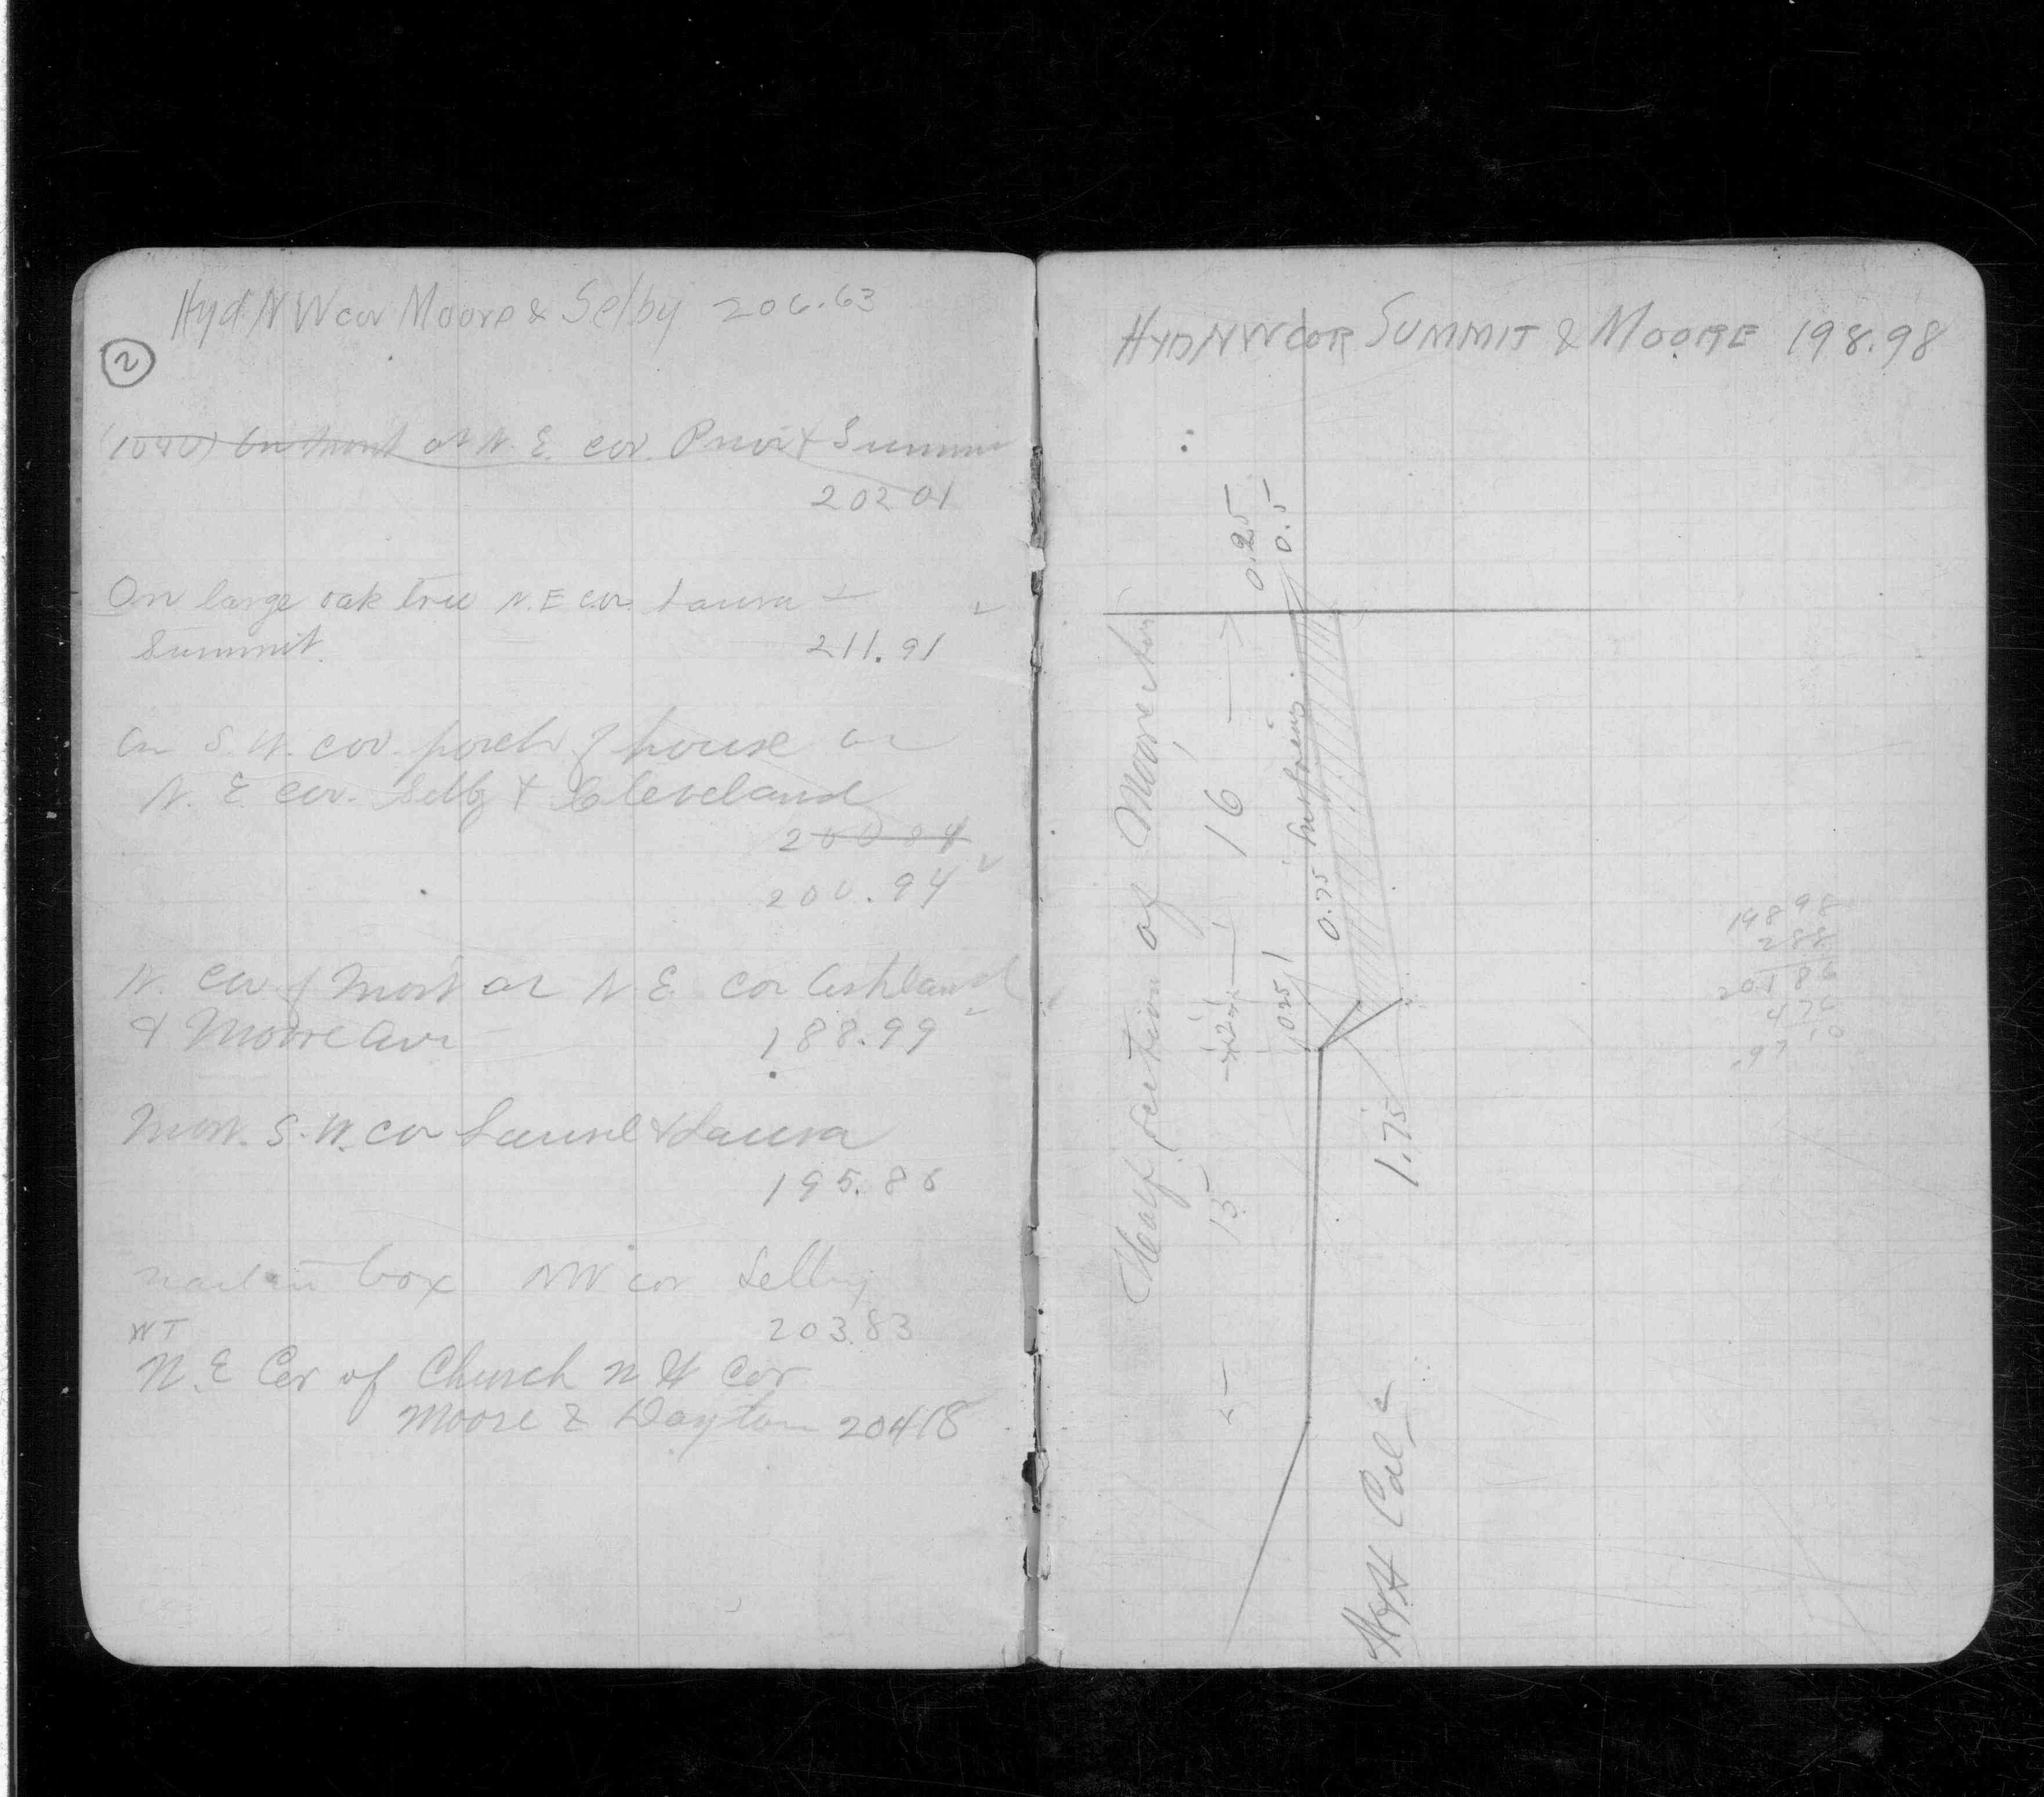 Hyd N W cor Moore & Selby 206.63
2
at N. E. cor. Prior & Summit
202 01
On large oak tree N. E cor. Laura &
Summit. 211.91
On S. W. cor. porch of house on
N. E. cor. Selby & Cleveland
200 84
200.94
N. Cor of Mont at N. E. cor Ashland
& Moore Ave 188.99
Mon. S. W. cor Laurel & Laura
195.86
box NW cor Selby
203.83
WT
N. E Cor of Church N W Cor
Moore & Dayton 204 18
HYD N W COR SUMMIT & MOORE 198.98
Half section of Moore Ave
0.25
0.5
5 15 2 16
0.25 0.75
1.75
198 98
2 88
201 86